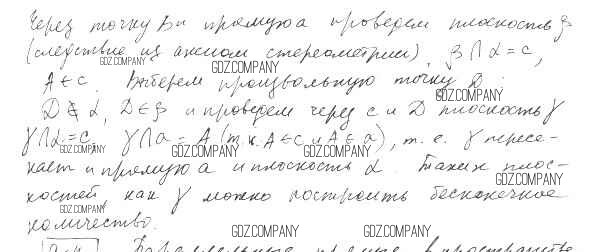 Через точку B и прямую a проведем плоскость β
(следствие из аксиом стереометрии), β ∩ α = c,
GDZ.COMPANY GDZ.COMPANY
A ∈ c. Выберем произвольную точку D:
GDZ.COMPANY
D ∉ α, D ∈ β и проведем через c и D плоскость γ
γ ∩ α = c, γ ∩ a = A (т.к. A ∈ c и A ∈ a), т.е. γ пересе-
GDZ.COMPANY GDZ.COMPANY GDZ.COMPANY
кает и прямую a и плоскость α. Таких плос-
GDZ.COMPANY
костей как γ можно построить бесконечное
GDZ.COMPANY
количество.
GDZ.COMPANY GDZ.COMPANY
Параллельные прямые в пространстве